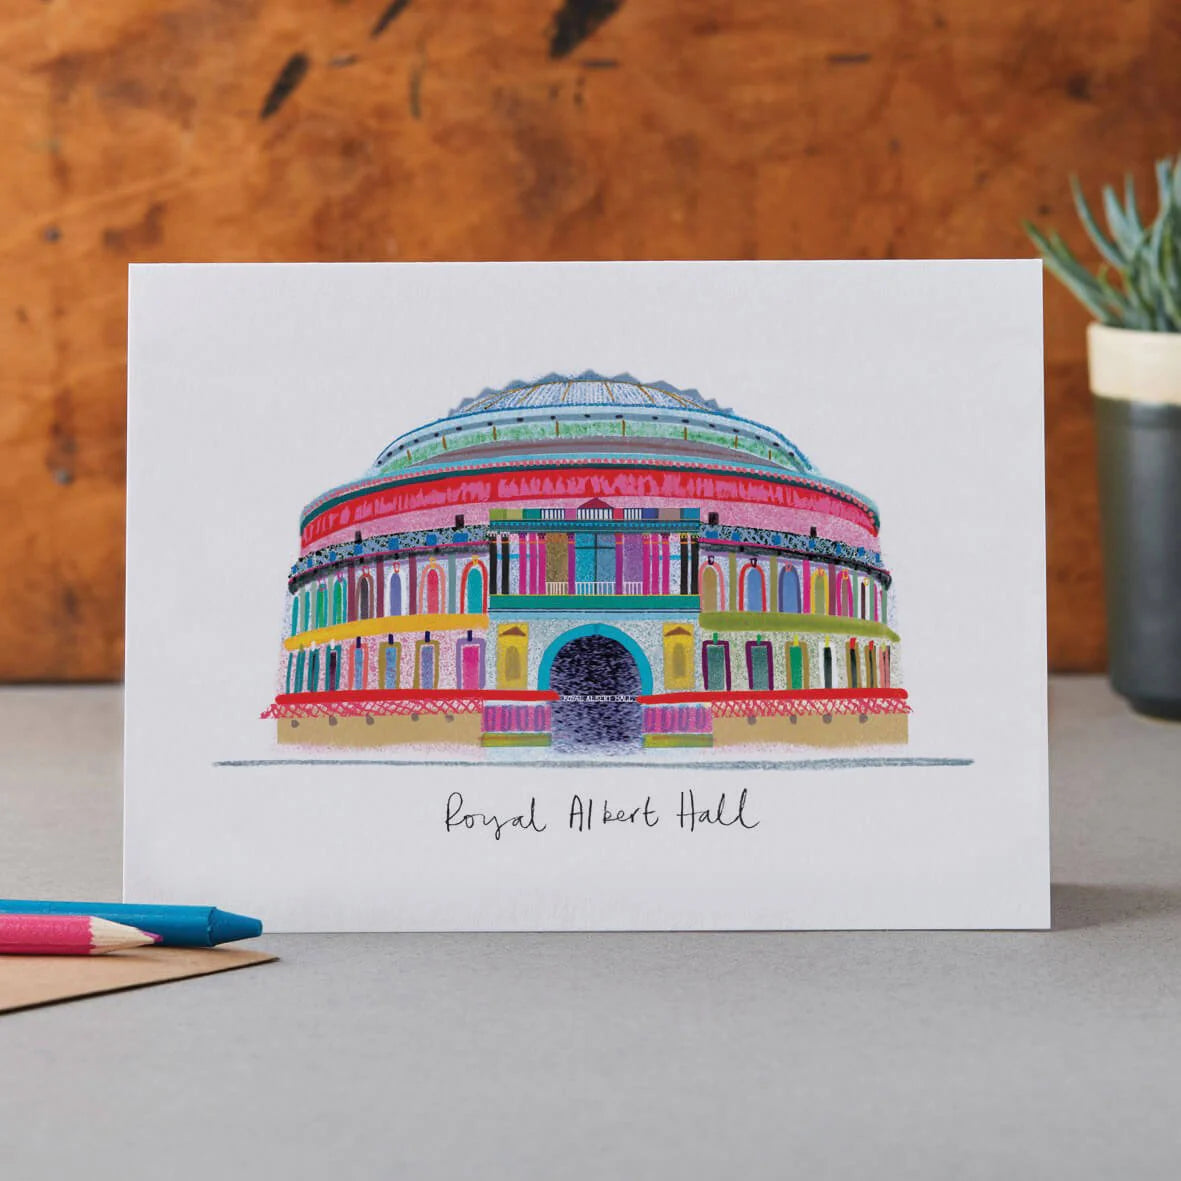 ROYAL ALBERT HALL
Royal Albert Hall